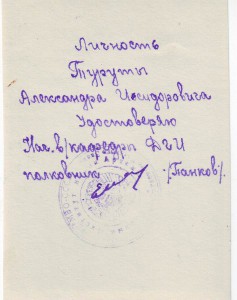 Личность
Туруты
Александра Исидоровича
Удостоверяю
Нач. в/кафедры ДГИ
полковник /Панков/.